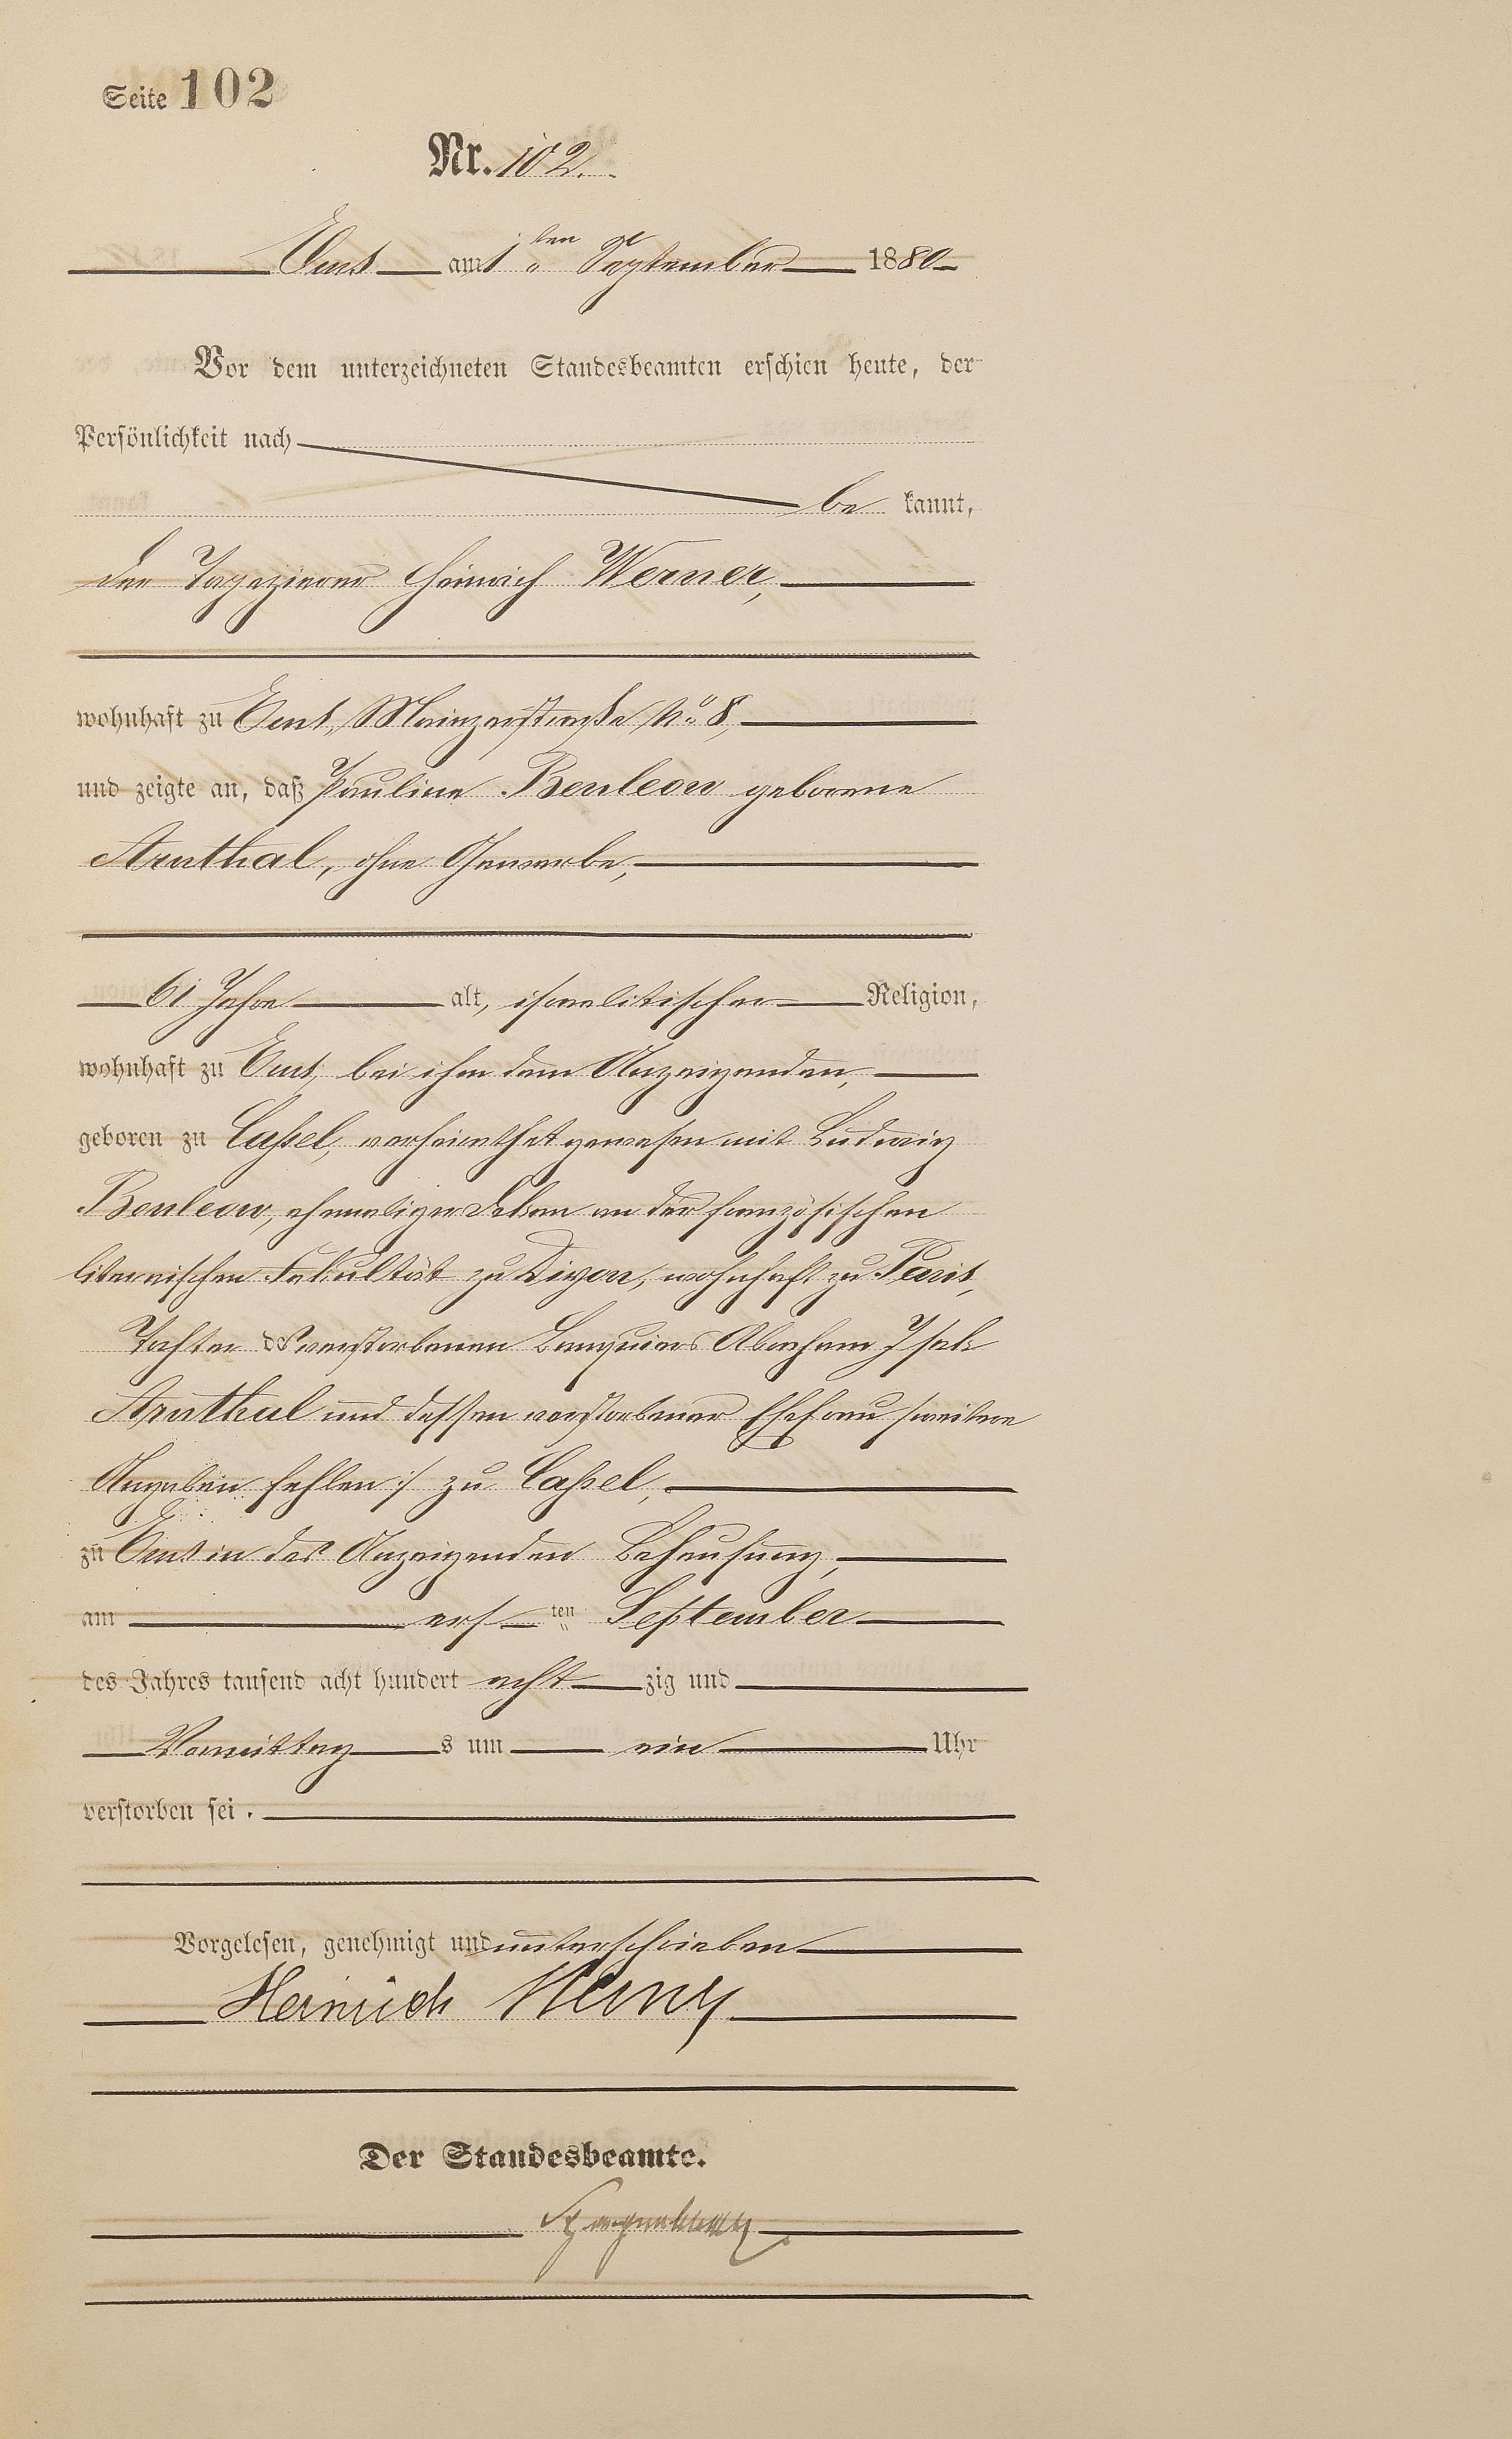 Seite 102
Nr. 102.
Ems am 1ten September 1880
Vor dem unterzeichneten Standesbeamten erschien heute, der
Persönlichkeit nach
be kannt,
der Tapezierer Heinrich Werner,
wohnhaft zu Ems, Mainzerstraße No 8,
und zeigte an, daß Pauline Benleow geborene
Arnthal, ohne Gewerbe,
61 Jahre alt, israelitischer Religion,
wohnhaft zu Ems, bei ihm dem Anzeigenden,
geboren zu Caßel, verheirathet gewesen mit Ludwig
Benleow, ehemaliger Dekan an der französischen
literarischen Fakultät zu Digon, wohnhaft zu Paris,
Tochter des verstorbenen Banquiers Abraham Isak
Arnthal und dessen verstorbener Ehefrau /:weitere
Angaben fehlen:/ zu Caßel,
zu Ems in des Anzeigenden Behausung,
am ersten September
des Jahres tausend acht hundert achtzig und
Vormittags um ein Uhr
verstorben sei.
Vorgelesen, genehmigt und unterschrieben
Heinrich Werner
Der Standesbeamte.